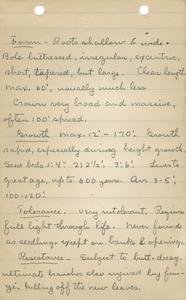 Form - Roots shallow & wide.
Bole buttressed, irregular, excentric,
short, tapered, but large. Clear length
max. 60', usually much less.
Crown very broad and massive,
often 100' spread.
Growth max. 12' - 170'. Growth
rapid, especially during height growth.
Seed beds 1:4" 2:2½' 3:6'. Lives to
great age, up to 600 years. Av. 3-5',
100-120'.
Tolerance. Very intolerant. Requires
full light through life. Never found
as seedlings except on banks & openings.
Resistance. Subject to butt-decay,
ultimate branches also injured by fun-
gi, killing off the new leaves.